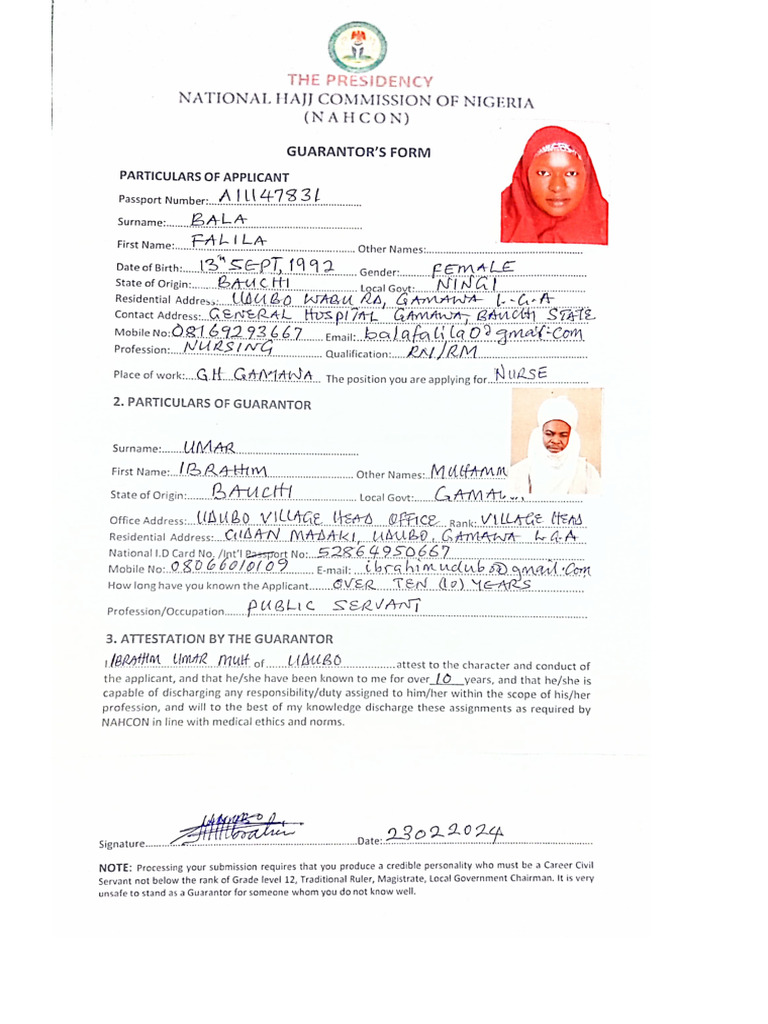 THE PRESIDENCY
NATIONAL HAJJ COMMISSION OF NIGERIA
(NAHCON)
GUARANTOR'S FORM
PARTICULARS OF APPLICANT
Passport Number: A11147831
Surname: BALA
First Name: FALILA Other Names:
Date of Birth: 13th SEPT, 1992 Gender: FEMALE
State of Origin: BAUCHI Local Govt: NINGI
Residential Address: UDUBO WABU RD, GAMAWA L.G.A
Contact Address: GENERAL HOSPITAL GAMAWA, BAUCHI STATE
Mobile No: 08169293667 Email: balafalila0@gmail.com
Profession: NURSING Qualification: RN/RM
Place of work: GH GAMAWA The position you are applying for NURSE
2. PARTICULARS OF GUARANTOR
Surname: UMAR
First Name: IBRAHIM Other Names: MUHAMM
State of Origin: BAUCHI Local Govt: GAMAW
Office Address: UDUBO VILLAGE HEAD OFFICE Rank: VILLAGE HEAD
Residential Address: GIDAN MADAKI, UDUBO, GAMAWA L.G.A
National I.D Card No. /Int'l Passport No: 52864950667
Mobile No: 08066010109 E-mail: ibrahimudubo@gmail.com
How long have you known the Applicant OVER TEN (10) YEARS
Profession/Occupation PUBLIC SERVANT
3. ATTESTATION BY THE GUARANTOR
I IBRAHIM UMAR MUH of UDUBO attest to the character and conduct of
the applicant, and that he/she have been known to me for over 10 years, and that he/she is
capable of discharging any responsibility/duty assigned to him/her within the scope of his/her
profession, and will to the best of my knowledge discharge these assignments as required by
NAHCON in line with medical ethics and norms.
Signature Date: 23022024
NOTE: Processing your submission requires that you produce a credible personality who must be a Career Civil
Servant not below the rank of Grade level 12, Traditional Ruler, Magistrate, Local Government Chairman. It is very
unsafe to stand as a Guarantor for someone whom you do not know well.